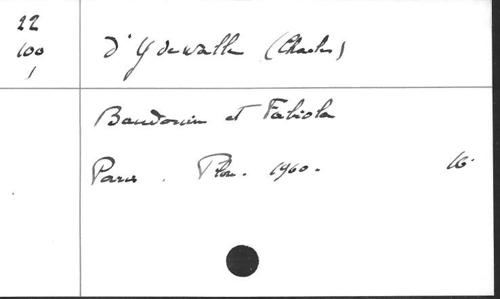 22
100
1
d'Ydewalle (Charles)
Baudouin et Fabiola
Paris. Plon. 1960. 16.